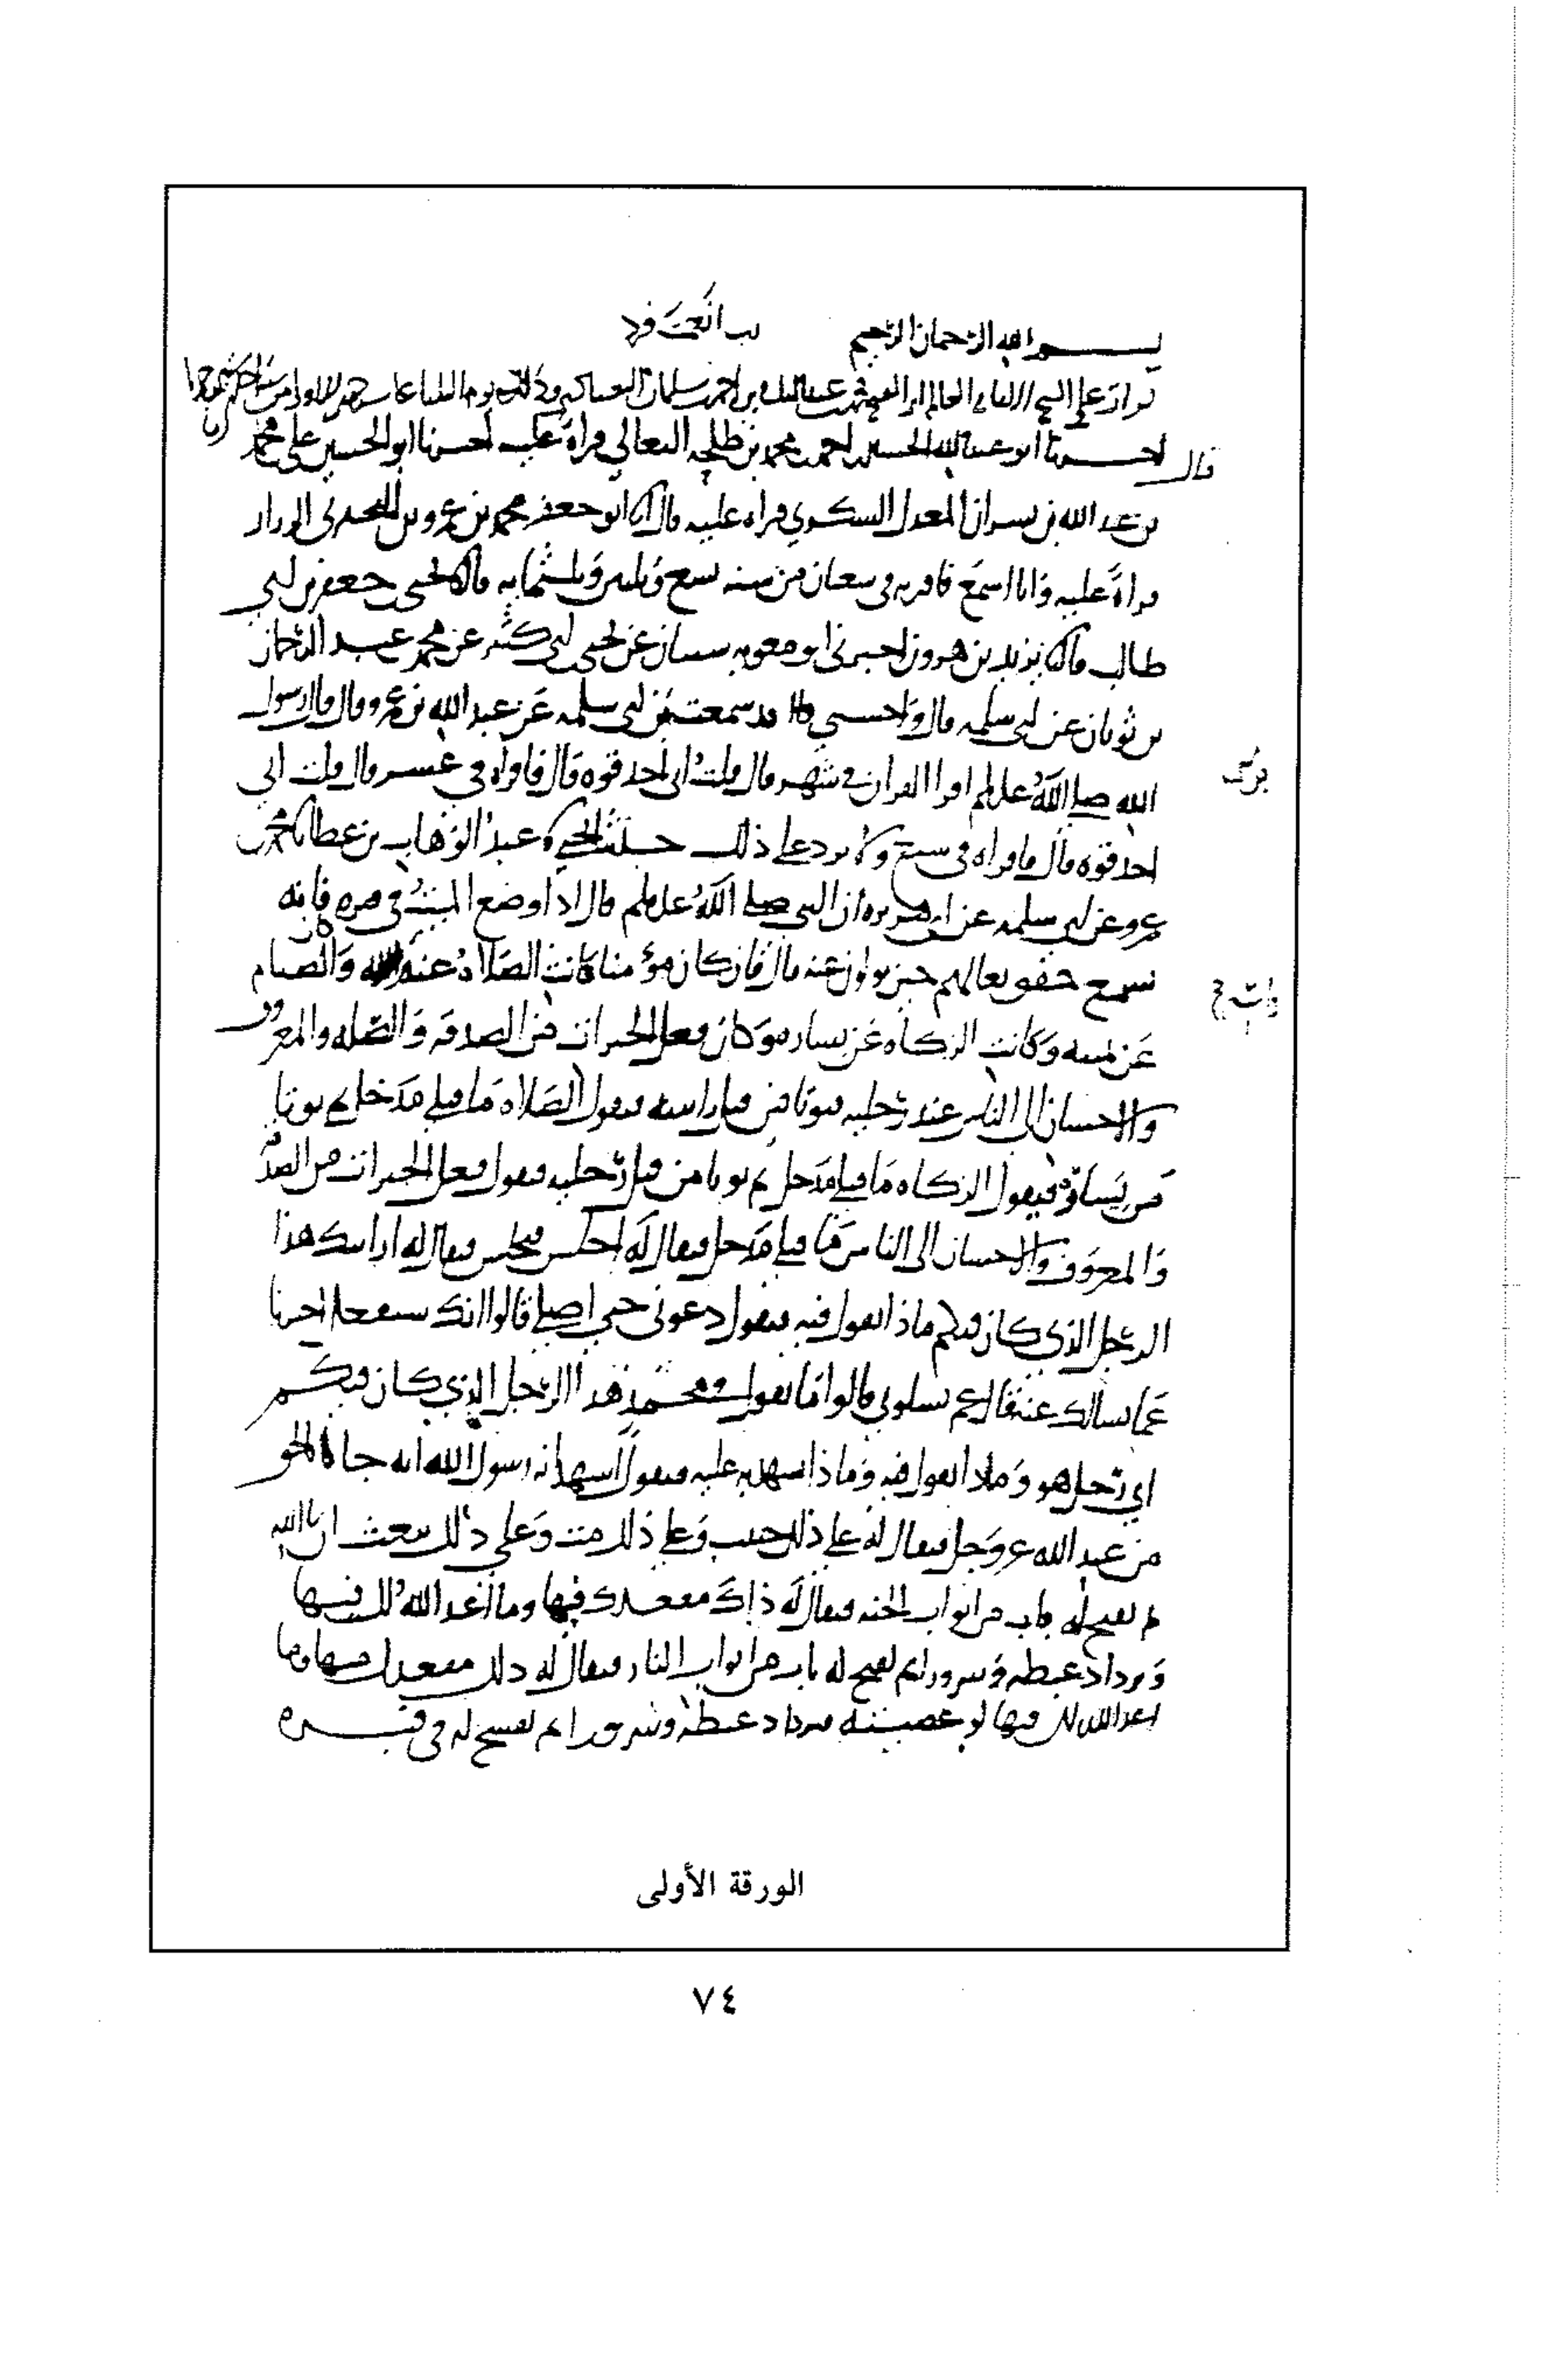 بسم الله الرحمن الرحيم رب أنعمت فزد
قال
اخبرنا ابو عبد الله الحسين بن احمد بن محمد بن طلحه النعالي قراءة عليه اخبرنا ابو الحسين علي بن محمد
بن عبد الله بن بسران المعدل السكري قراه عليه قال ابو جعفر محمد بن عمرو بن البختري الرزاز
قراءة عليه وانا اسمع فاقر به في شعبان من سنه تسع وثلثين وثلثمايه قال يحيى بن جعفر بن ابي
طالب قال يزيد بن هرون اخبرني ابو معويه شيبان عن يحيى بن ابي كثير عن محمد بن عبد الرحمان
بن ثوبان عن ابي سلمه قال واحسبني قد سمعت من ابي سلمه عن عبد الله بن عمرو قال قال رسول
الله صلى الله عليه وسلم اقرا القران في شهر قال قلت اني اجد قوه قال فاقراه في عشر قال قلت اني
اجد قوه قال فاقراه في سبع ولا تزد على ذلك حدثنا يحيى عبد الوهاب بن عطا محمد بن
عمرو عن ابي سلمه عن ابي هريره ان النبي صلى الله عليه وسلم قال اذا وضع الميت في قبره فانه
يسمع خفق نعالهم حين يولون عنه قال فان كان مؤمنا كانت الصلاة عند والصيام
عن يمينه وكانت الزكاه عن يساره وكان فعل الخيرات من الصدقه والصله والمعروف
والاحسان الى الناس عند رجليه فيوتا من قبل راسه فيقول الصلاه ما قبلي مدخل ثم يوتا
عن يساره فيقول الزكاه ما قبلي مدخل ثم يوتا من قبل رجليه فيقول فعل الخيرات من الصدقه
والمعروف والاحسان الى الناس ما قبلي مدخل فيقال له اجلس فيجلس فيقال له ارايتك هذا
الرجل الذي كان فيكم ماذا تقول فيه فيقول دعوني حتى اصلي قالوا انك ستفعل اخبرنا
عما نسالك عنه قال عم تسلوني قالوا ما تقول في محمد هذا الرجل الذي كان فيكم
اي رجل هو وماذا تقول فيه وماذا تشهد به عليه فيقول اشهد انه رسول الله انه جا بالحق
من عند الله عز وجل فيقال له على ذلك حييت وعلى ذلك مت وعلى ذلك تبعث ان شا الله
ثم يفتح له باب من ابواب الجنه فيقال له ذاك مقعدك فيها وما اعد الله لك فيها
فيزداد غبطه وسرورا ثم يفتح له باب من ابواب النار فيقال له ذلك مقعدك منها وما
اعد الله لك فيها لو عصيته فيزداد غبطه وسرورا ثم يفسح له في قبره
الورقة الأولى
٧٤